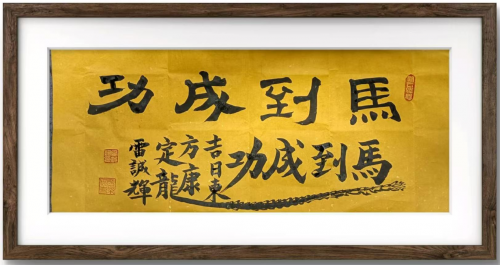 馬到成功
馬到成功
吉日東
方康
定龍
雷誠輝